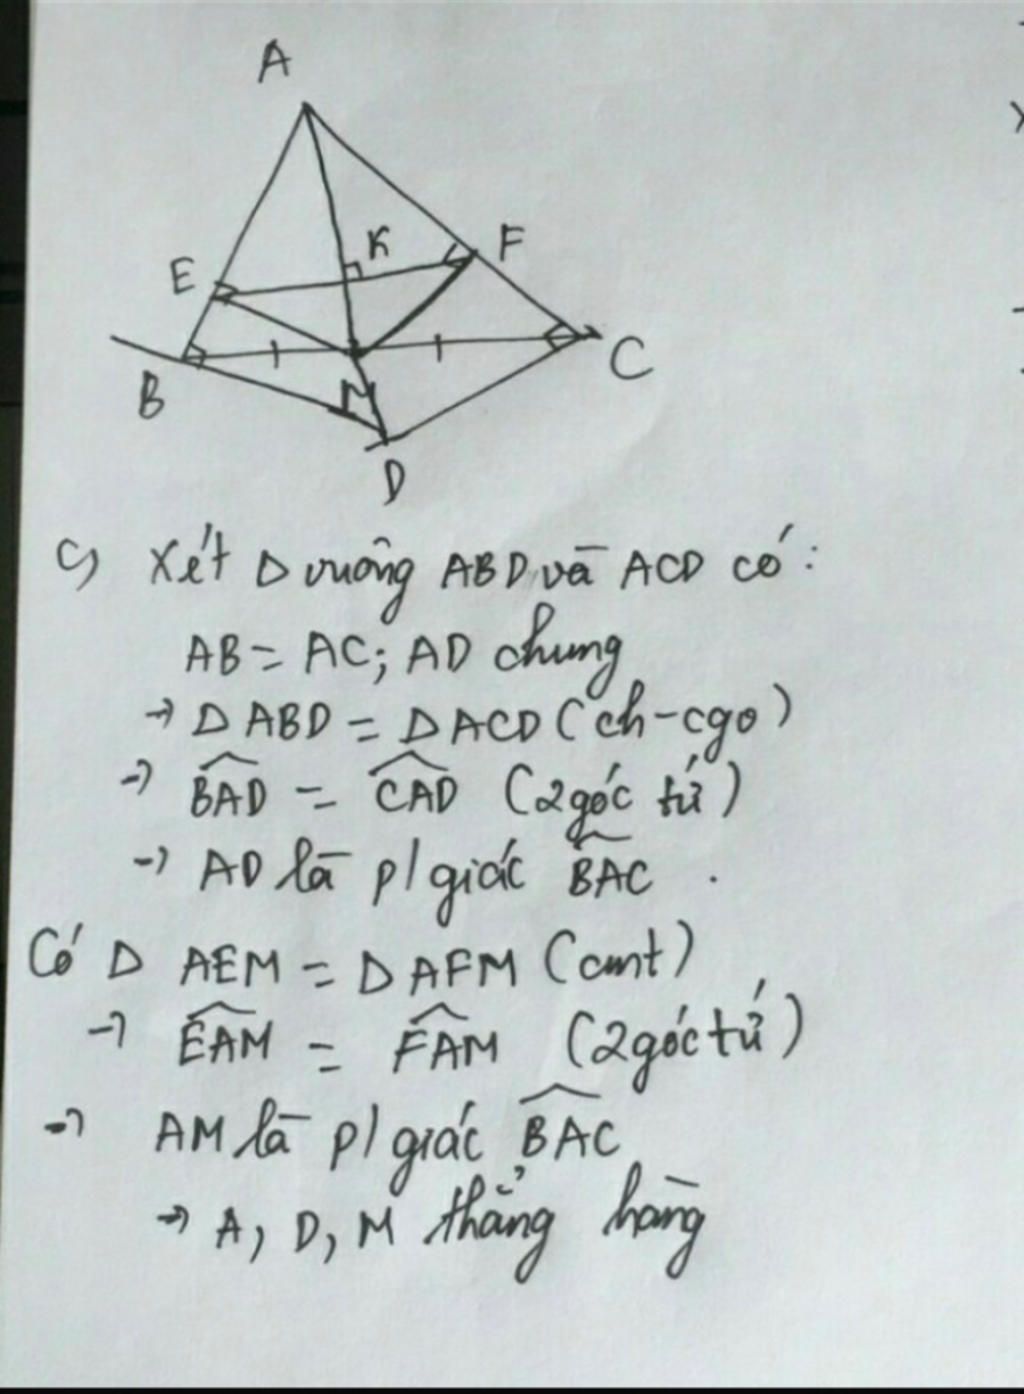 A
K
F
E
C
B
M
D
c) Xét Δ vuông ABD và ACD có:
AB = AC; AD chung
→ Δ ABD = Δ ACD (ch-cgv)
→ \widehat{BAD} = \widehat{CAD} (2 góc tứ)
→ AD là p/giác \widehat{BAC}.
Có Δ AEM = Δ AFM (cmt)
→ \widehat{EAM} = \widehat{FAM} (2 góc tứ)
→ AM là p/giác \widehat{BAC}
→ A, D, M thẳng hàng